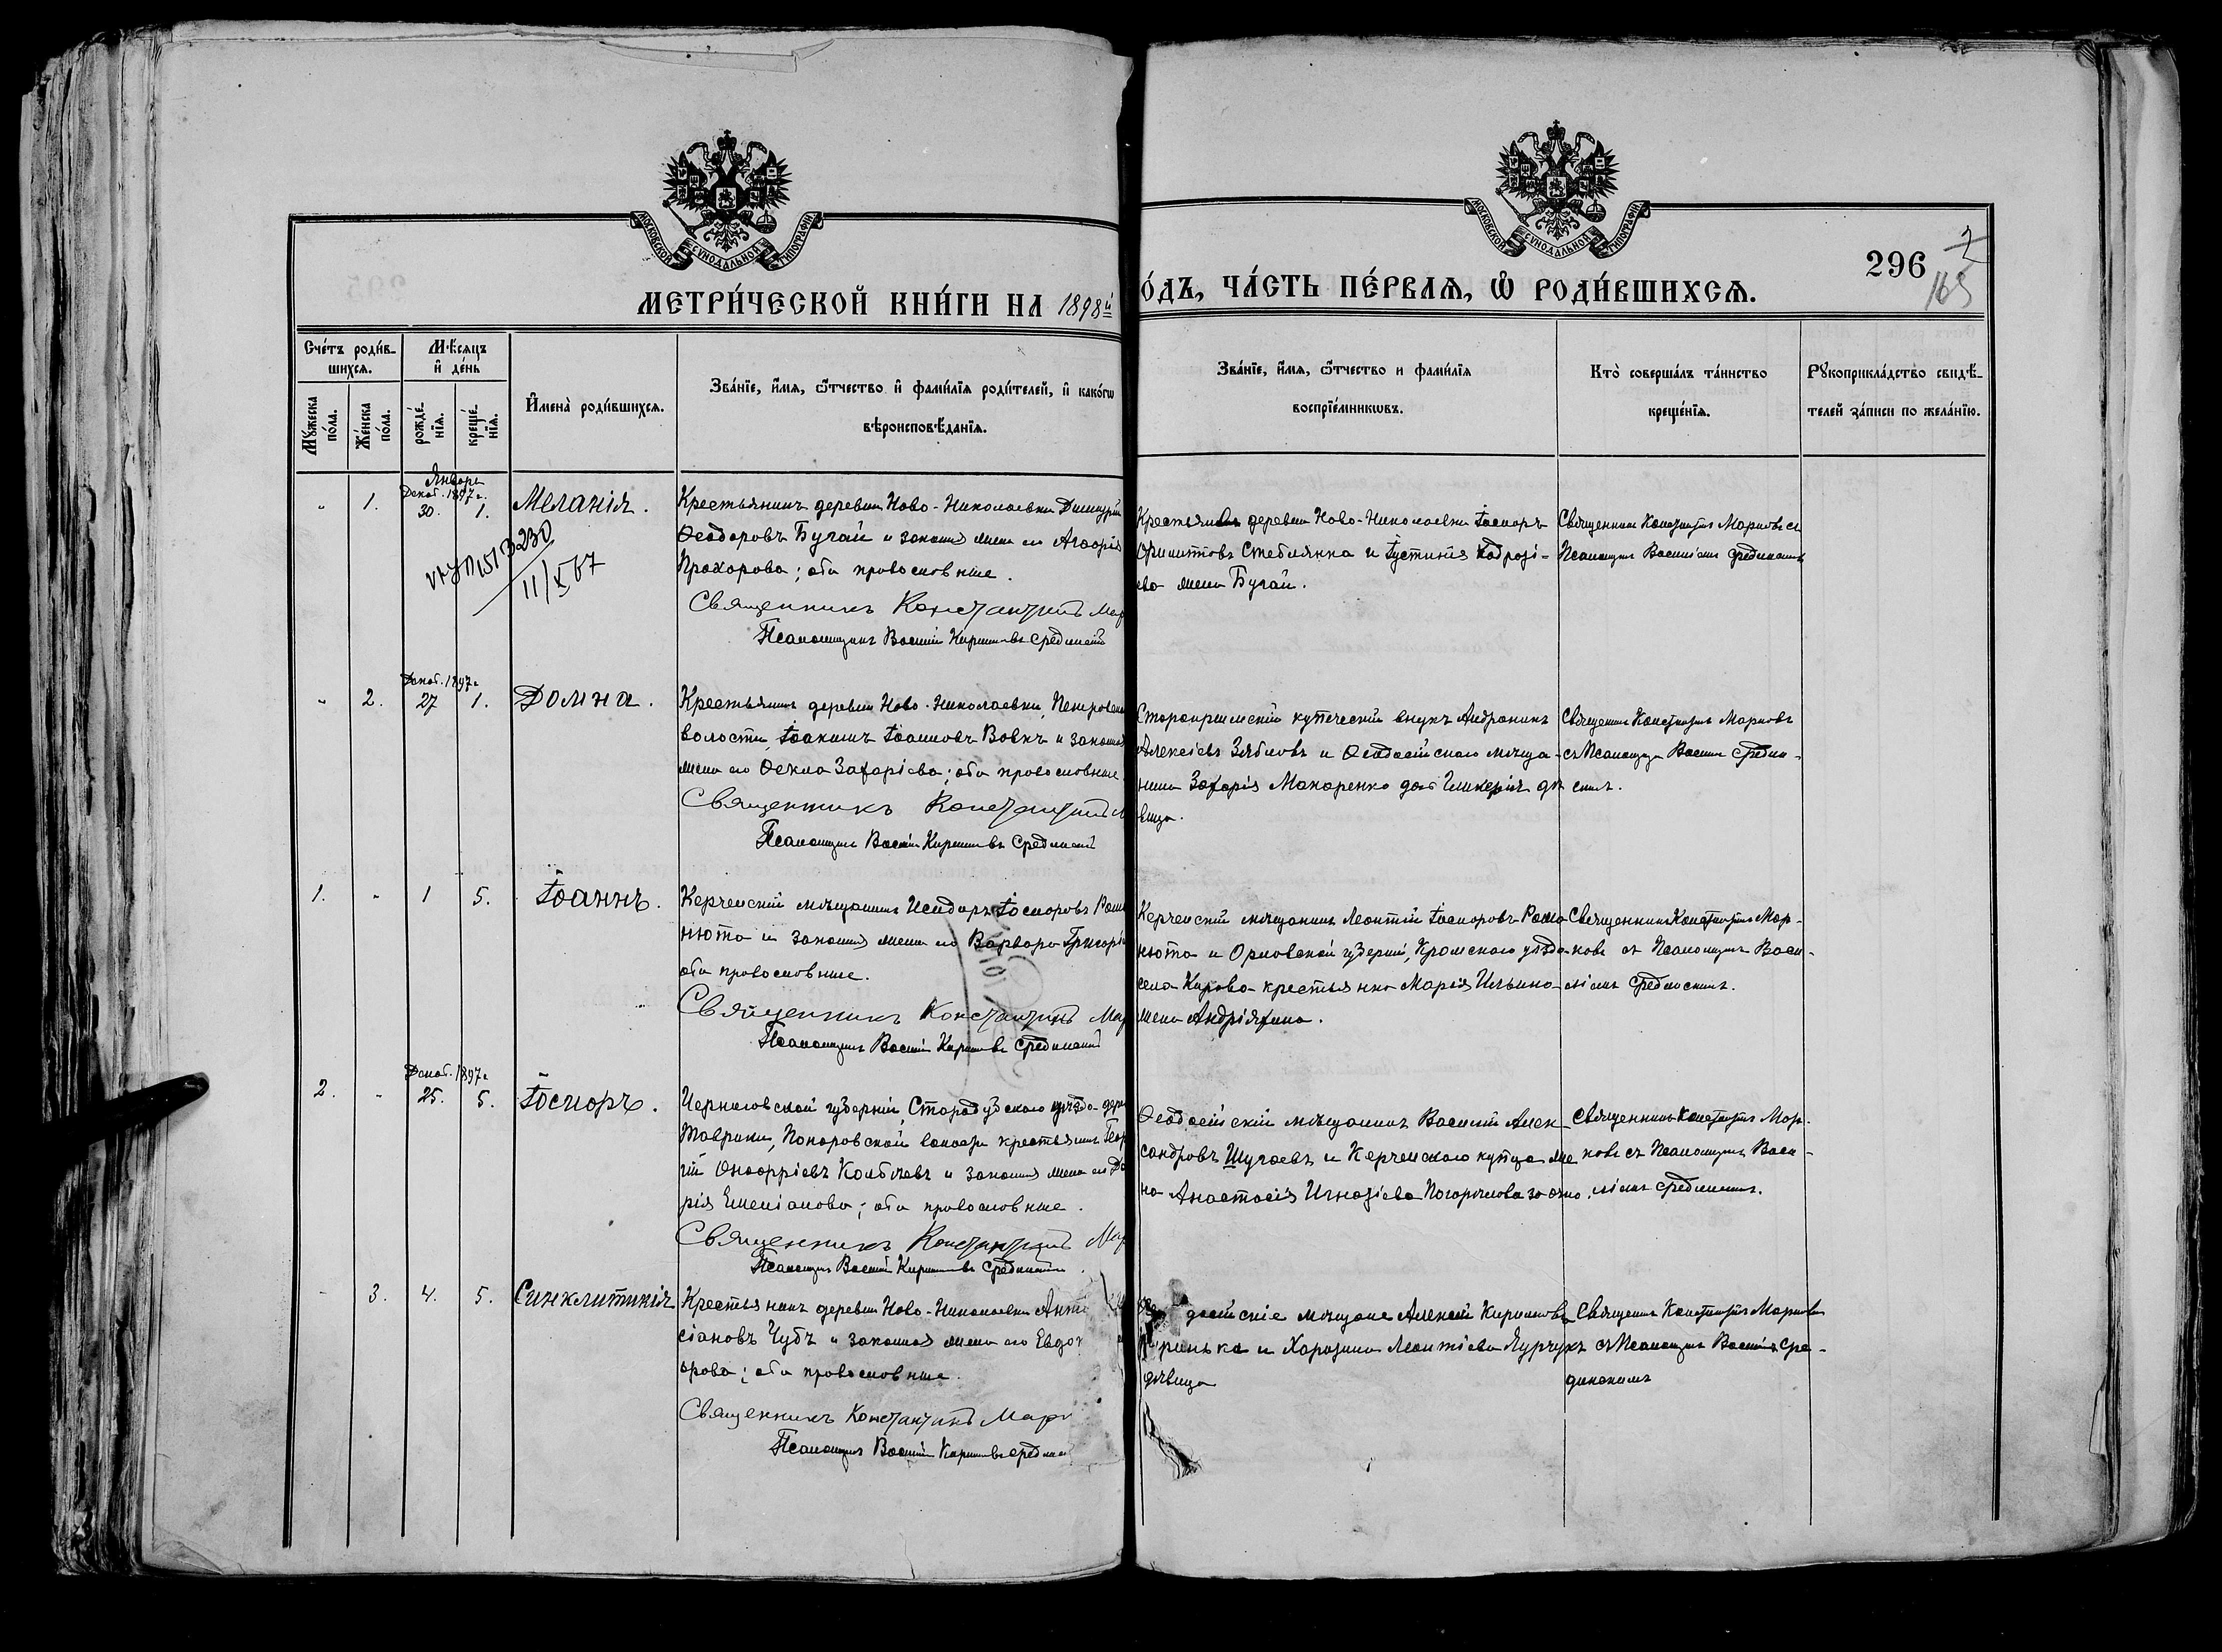 МОСКОВСКОЙ СУНОДАЛЬНОЙ ТИПОГРАФІИ
МОСКОВСКОЙ СУНОДАЛЬНОЙ ТИПОГРАФІИ
296
2
165
МЕТРИ́ЧЕСКОЙ КНИ́ГИ НА 1898й
О́ДЪ, ЧА́СТЬ ПЕ́РВАѦ, Ѡ РОДИ́ВШИХСѦ.
Сче́тъ роди́в-
шихсѧ.
Мꙋжеска по́ла.
Же́нска по́ла.
Мѣ́сѧцъ и де́нь
рожде́-нїѧ.
креще́-нїѧ.
И҆мена̀ роди́вшихсѧ.
Зва́нїе, и҆́мѧ, ѻ҆́тчество и҆ фами́лїѧ роди́телей, и҆ како́гѡ
вѣроисповѣ́данїѧ.
Зва́нїе, и҆́мѧ, ѻ҆́тчество и фами́лїѧ
воспрїе́мникѡвъ.
Кто̀ соверша́лъ та́инство
креще́нїѧ.
Рꙋкоприкла́дство свидѣ́-
телей за́писи по жела́нїю.
Январь
Декаб. 1897г.
" 1. 30. 1. Меланія.
Крестьянинъ деревни Ново-Николаевки Димитрій
Ѳеодоровъ Бугай и законная жена его Агафія
Прохорова; оба православные.
Священникъ Константинъ Мар
Псаломщикъ Василій Кирилловъ Срединскій
Крестьянинъ деревни Ново-Николаевки Іосифъ
Стеблянка и Іустинія
ева жена Бугай.
Священникъ Константинъ Марковъ съ
Псаломщикомъ Василіемъ Срединскимъ
11/X 67
Декаб. 1897г
" 2. 27 1. Домна.
Крестьянинъ деревни Ново-Николаевки, Петровской
волости, Іоакимъ Іоанновъ Вовкъ и законная
жена его Ѳекла Захаріева; оба православные.
Священникъ Константинъ М
Псаломщикъ Василій Кирилловъ Срединскій
Старокрымскій купеческій внукъ Андроникъ
Алексіевъ Зябловъ и Ѳеодосійскаго мѣща-
нина Захарія Макаренко дочь Гликерія дѣ
вица.
Священникъ Константинъ Марковъ
съ Псаломщикомъ Василіемъ Средин-
скимъ.
1. " 1 5. Іоаннъ.
Керченскій мѣщанинъ Исидоръ Іосифовъ Рома
нюта и законная жена его Варвара Григорі
оба православные.
Священникъ Константинъ Мар
Псаломщикъ Василій Кирилловъ Срединскій
Керченскій мѣщанинъ Леонтій Іосифовъ Рома
нюта и Орловской губерніи, Кромскаго уѣзда
села Кирово крестьянка Марія Ильина
жена Андріяхина.
Священникъ Константинъ Мар-
ковъ съ Псаломщикомъ Васи-
ліемъ Срединскимъ.
Декаб. 1897г
2. " 25. 5. Іосифъ.
Черниговской губерніи, Стародубскаго уѣзда дерев
Таврики, Понуровской волости крестьянинъ Геор
гій Онофріевъ и законная жена его Да
рія Емеліанова; оба православные.
Священникъ Константинъ Мар
Псаломщикъ Василій Кирилловъ Срединскій.
Ѳеодосійскій мѣщанинъ Василій Алек-
сандровъ Шугаевъ и Керченскаго купца же
на Анастасія Игнатіева
Священникъ Константинъ Мар-
ковъ съ Псаломщикомъ Васи-
ліемъ Срединскимъ.
" 3. 4. 5. Синклитикія
Крестьянинъ деревни Ново-Николаевки
сіановъ Чубъ и законная жена его Евдок
орова; оба православные.
Священникъ Константинъ Марк
Псаломщикъ Василій Кирилловъ Средин
досійскіе мѣщане Алексій Кирилловъ
и Харитина Леонтіева Ярчукъ
дѣвица
Священникъ Константинъ Марковъ
съ Псаломщикомъ Василіемъ Сре-
динскимъ